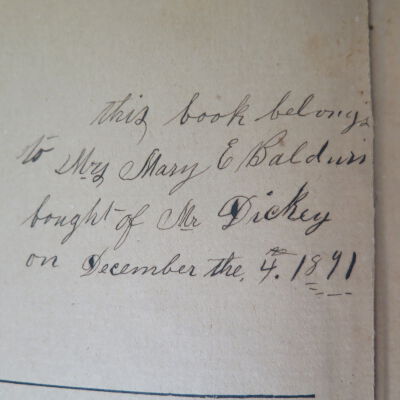 this book belongs
to Mrs Mary E Baldwin
bought of Mr Dickey
on December the 4th. 1891